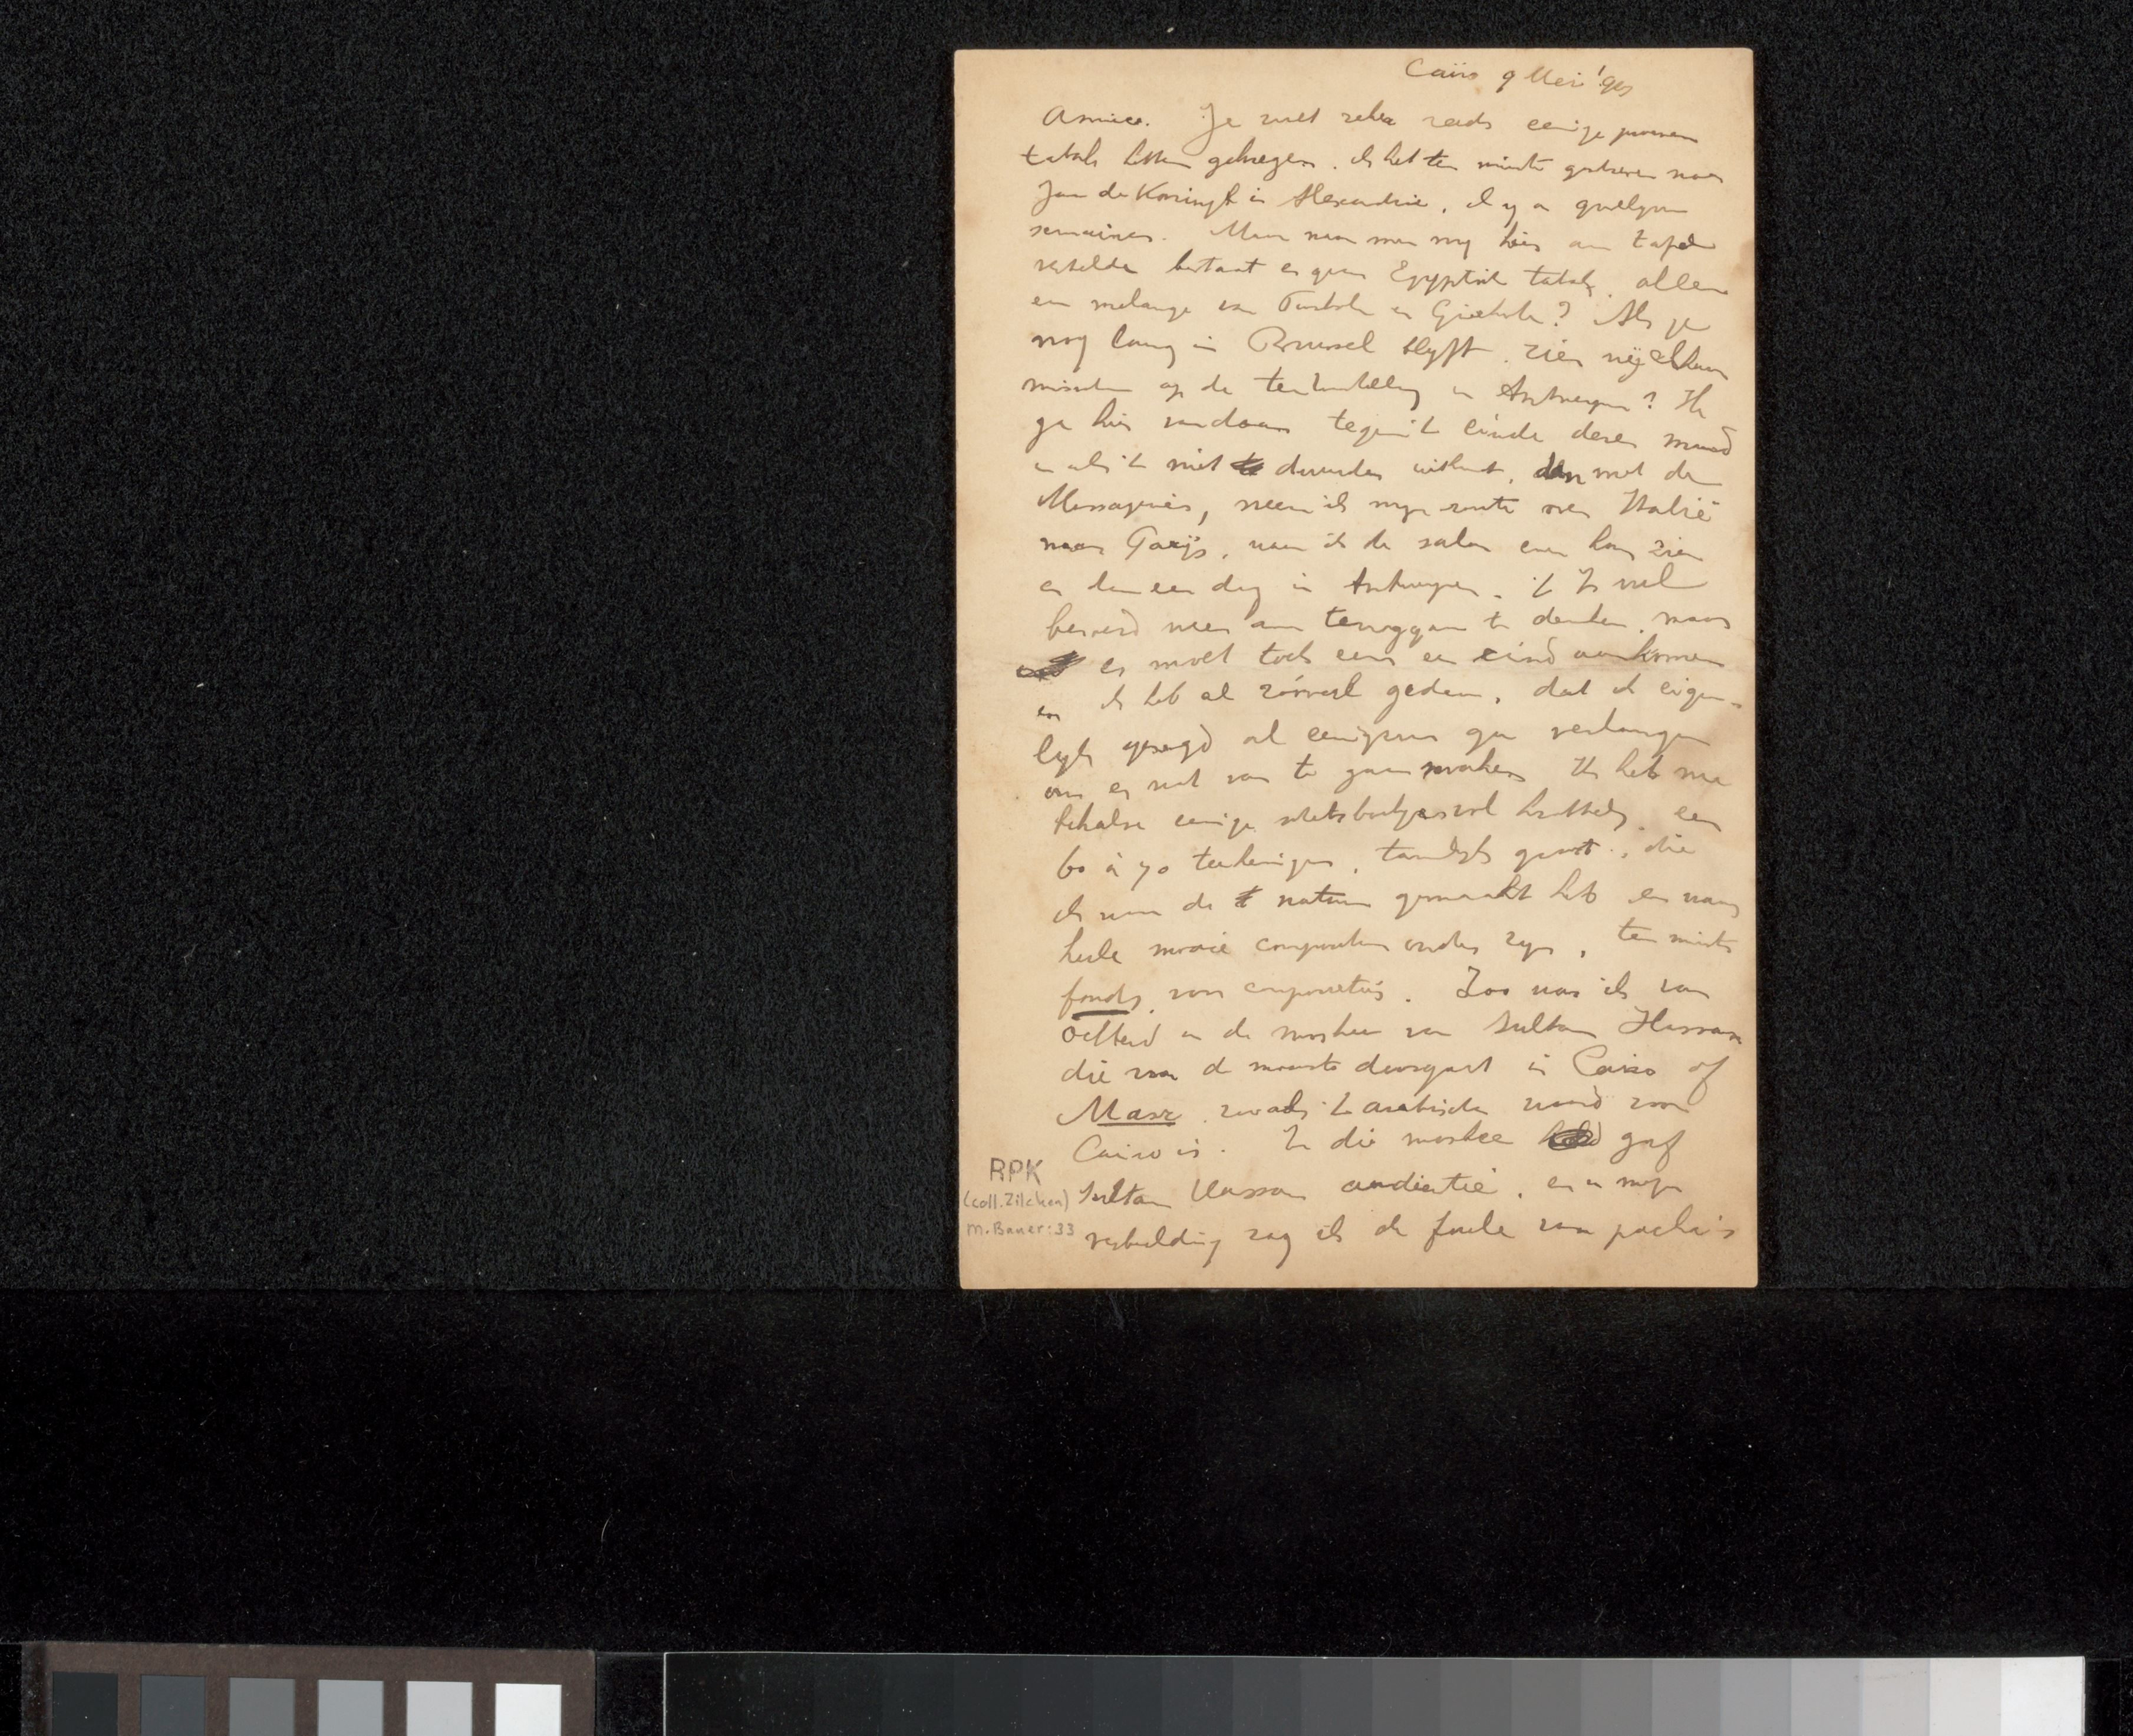 Caïro 9 Mei '95
Amice. Je zult zeker reeds eenige
tabak hebben gekregen. ik heb ten minste geschreven naar
Jan de Koningh in Alexandrie, il y a quelques
semaines. Maar naar men my hier aan tafel
vertelde bestaat er geen Egyptische tabak, alleen
een melange van Turksche en Grieksche? Als je
nog lang in Brussel blyft. zien wij elkaar
misschien op de tentoonstelling in Antwerpen? Ik
ga hier vandaan tegen 't einde dezer maand
en als 't niet te duurder uitkomt, dan met de
Messageries, neem ik myn route over Italië
naar Parijs, waar ik de salon even kan zien
en dan een dag in Antwerpen. 't Is wel
beroerd weer aan teruggaan te denken, maar
er moet toch eens een eind aankomen
en ik heb al zóóveel gedaan, dat ik eigen-
lyk gezegd al eenigszins ga verlangen
om er wat van te gaan maken. Ik heb nu
behalve eenige schetsboekjes vol krabbels, een
60 à 70 teekeningen, tamelyk groot, die
ik naar de natuur gemaakt heb en waar
heele mooie composities onder zyn, ten minste
fonds voor composities. Zoo was ik van
ochtend in de moskee van Sultan Hassan
die van de mooiste is in Caïro of
Masr, zooals 't arabische woord voor
Cairo is. In die moskee gaf
Sultan Hassan audientie, en in myn
verbeelding zag ik de foule van pacha's
RPK
(coll. Zilcken)
M. Bauer: 33